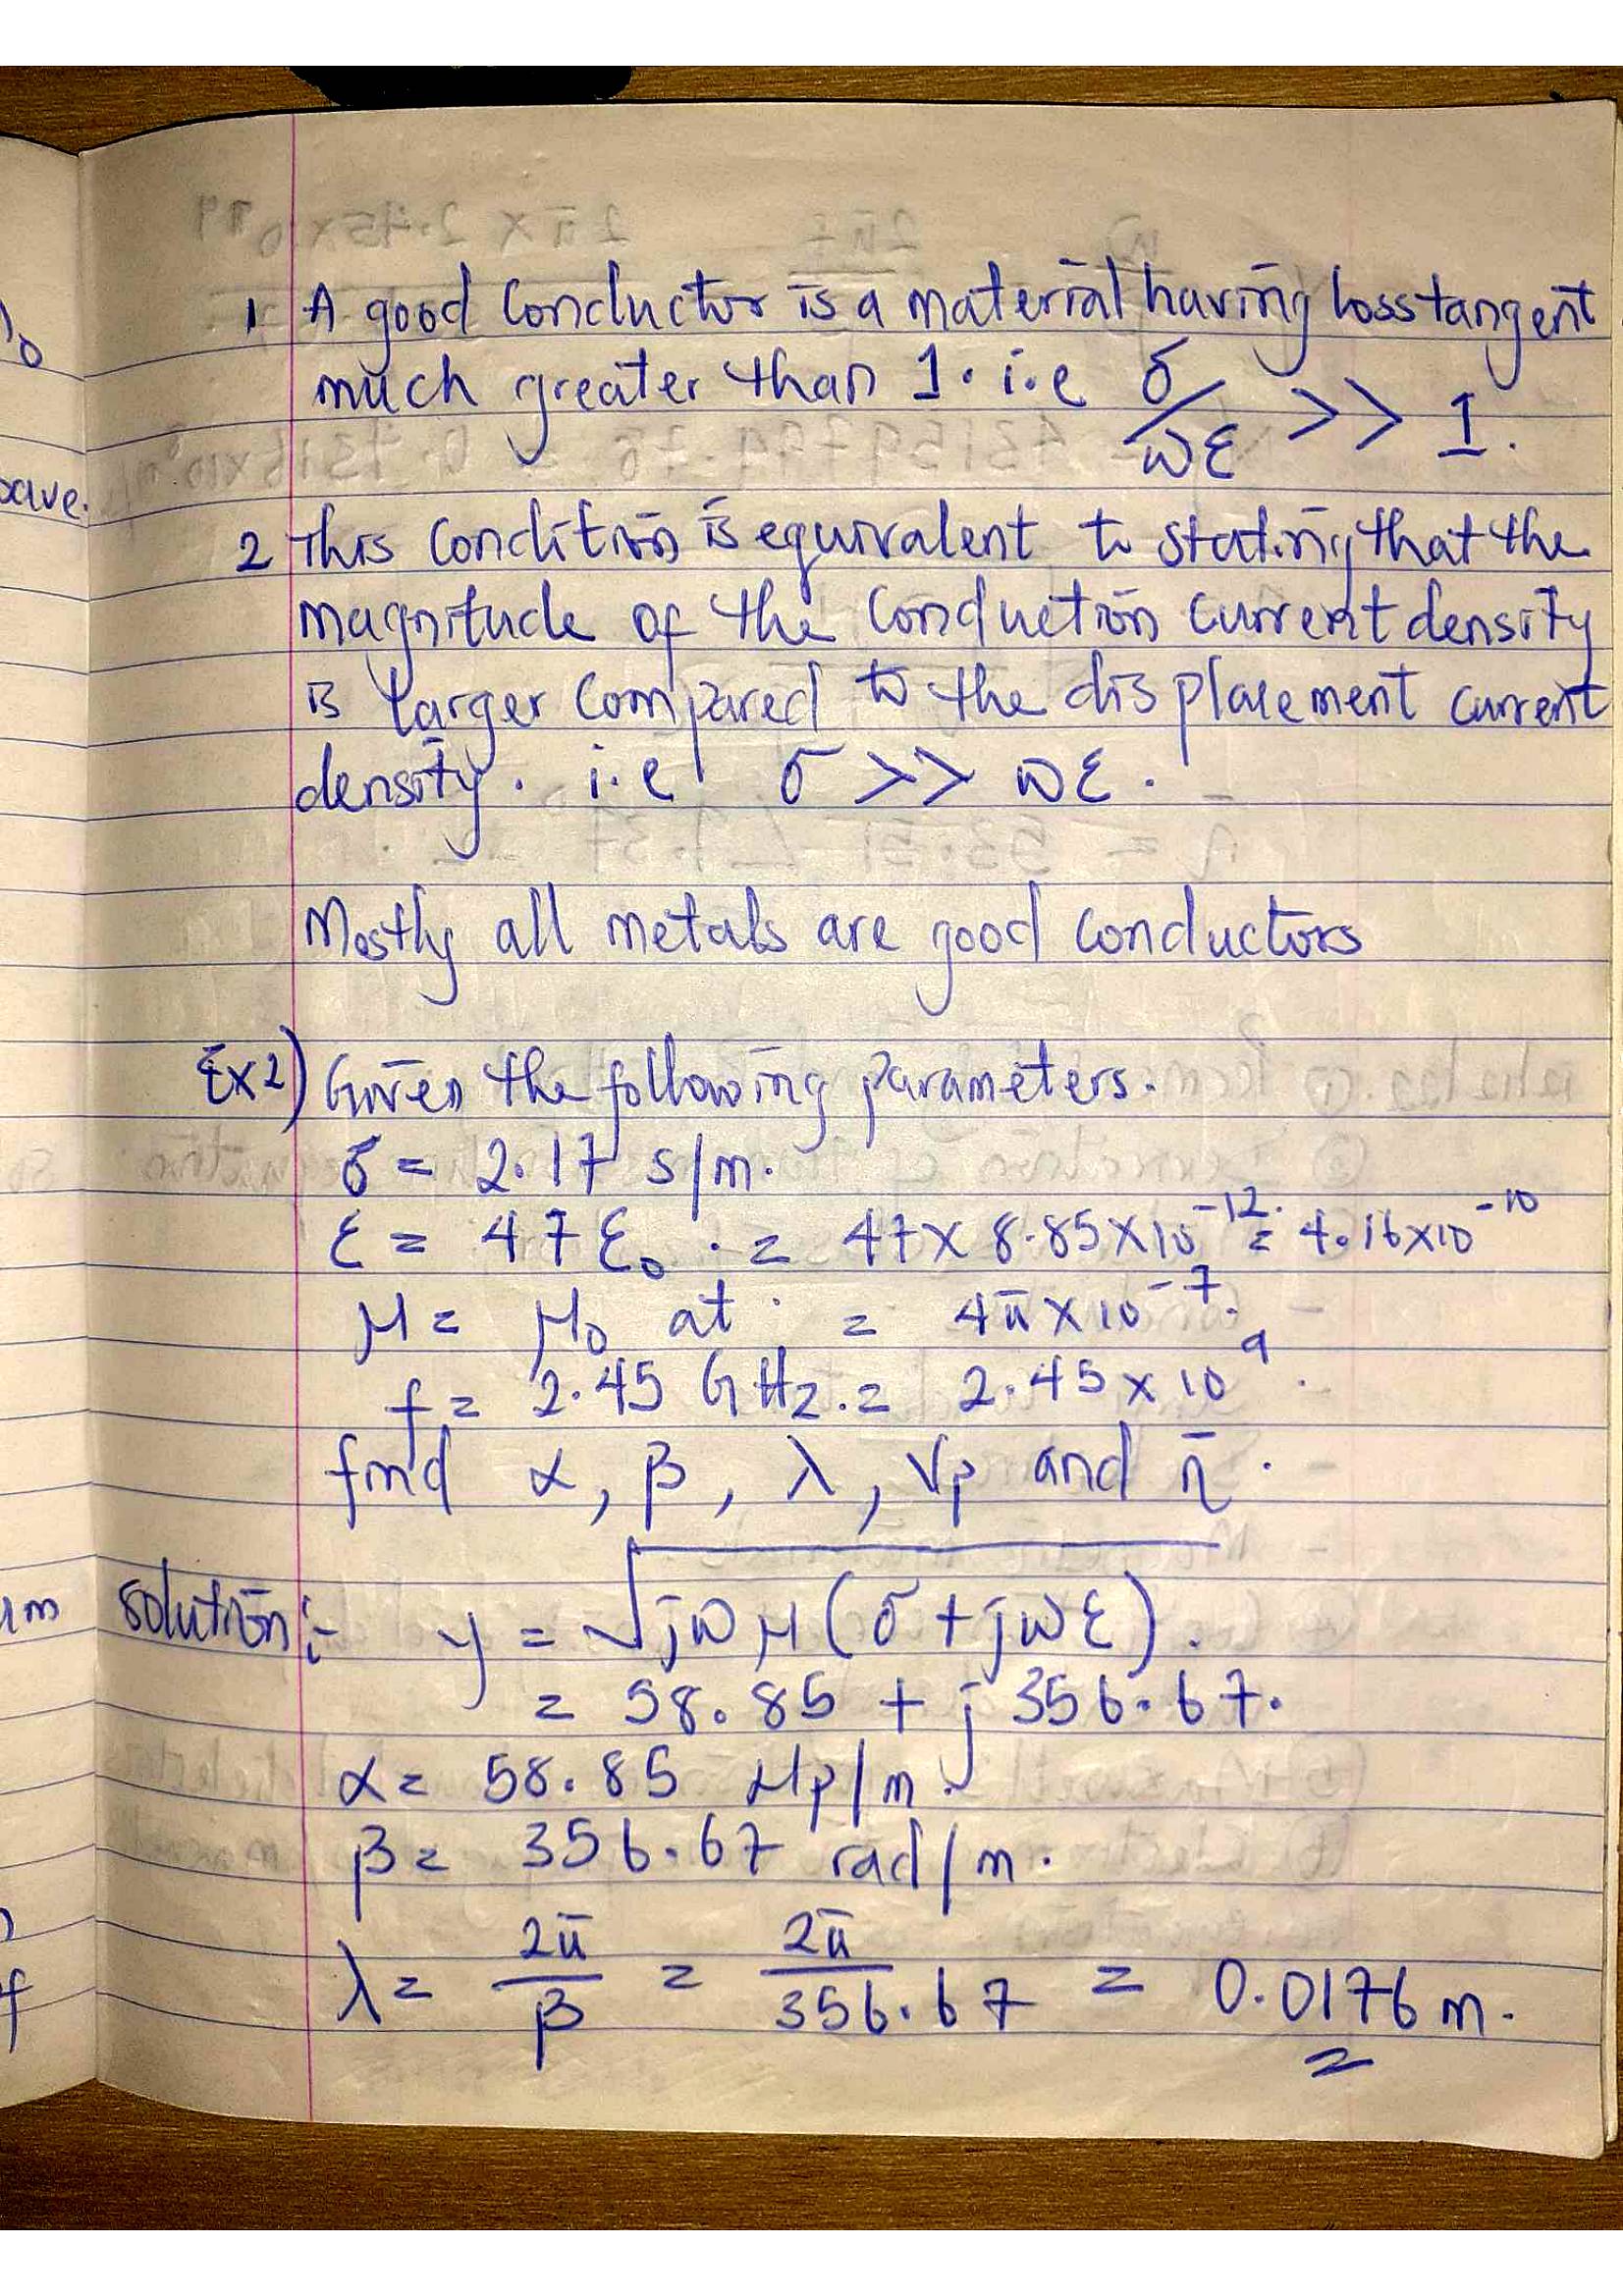 1 A good conductor is a material having loss tangent
much greater than 1. i.e σ/ωε >> 1.
2 This condition is equivalent to stating that the
magnitude of the conduction current density
is larger compared to the displacement current
density. i.e σ >> ωε.
Mostly all metals are good conductors
Ex2) Given the following parameters.
σ = 2.17 s/m.
ε = 47ε₀. = 47 x 8.85x10⁻¹². = 4.16x10⁻¹⁰
μ = μ₀ at = 4π x 10⁻⁷.
f = 2.45 GHz. = 2.45 x 10⁹.
find α, β, λ, Vp and η̄.
solution:- γ = √jωμ(σ+jωε).
= 58.85 + j 356.67.
α = 58.85 Np/m.
β = 356.67 rad/m.
λ = 2π/β = 2π/356.67 = 0.0176 m.